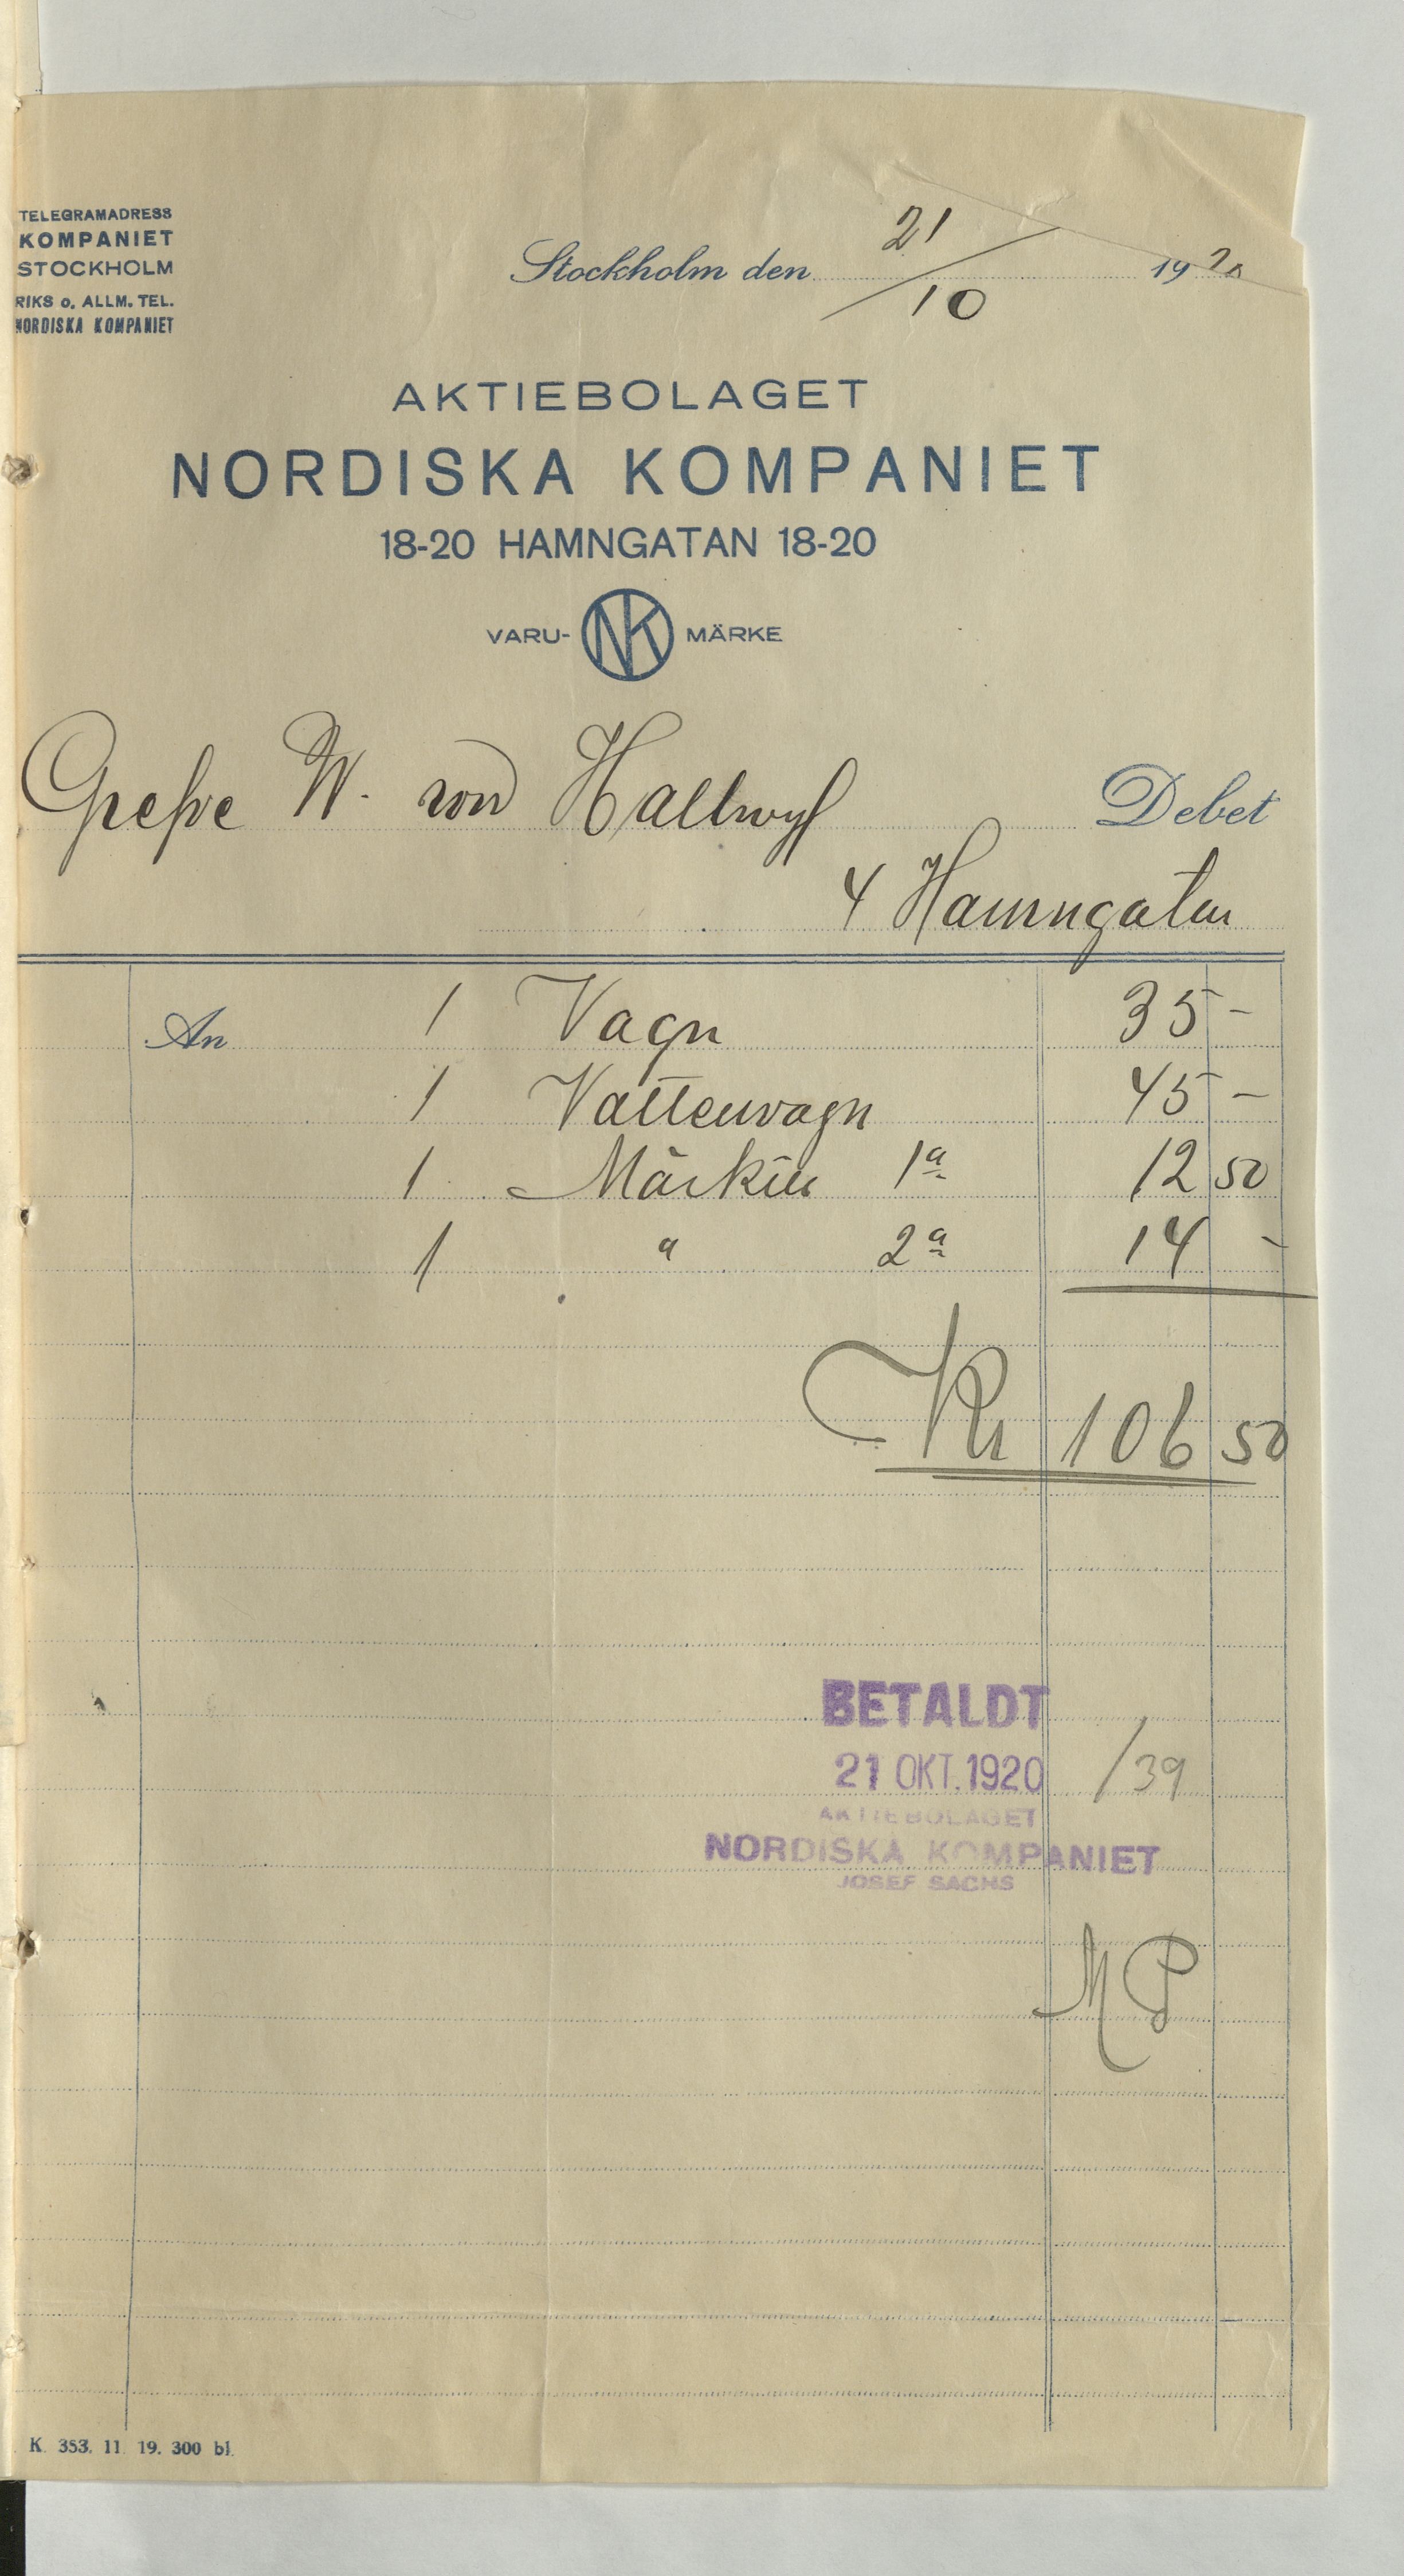 TELEGRAMADRESS
KOMPANIET
STOCKHOLM
RIKS o. ALLM. TEL.
NORDISKA KOMPANIET
Stockholm den 21/10 1920
AKTIEBOLAGET
NORDISKA KOMPANIET
18-20 HAMNGATAN 18-20
VARU- NK MÄRKE
Grefve W. von Hallwyl Debet
4 Hamngatan
An 1 Vagn 35 -
1 Vattenvagn 45 -
1 1a 12 50
1 " 2a 14 -
Kr 106 50
BETALDT
21 OKT. 1920 /39
AKTIEBOLAGET
NORDISKA KOMPANIET
JOSEF SACHS
MP
K. 353. 11. 19. 300 bl.